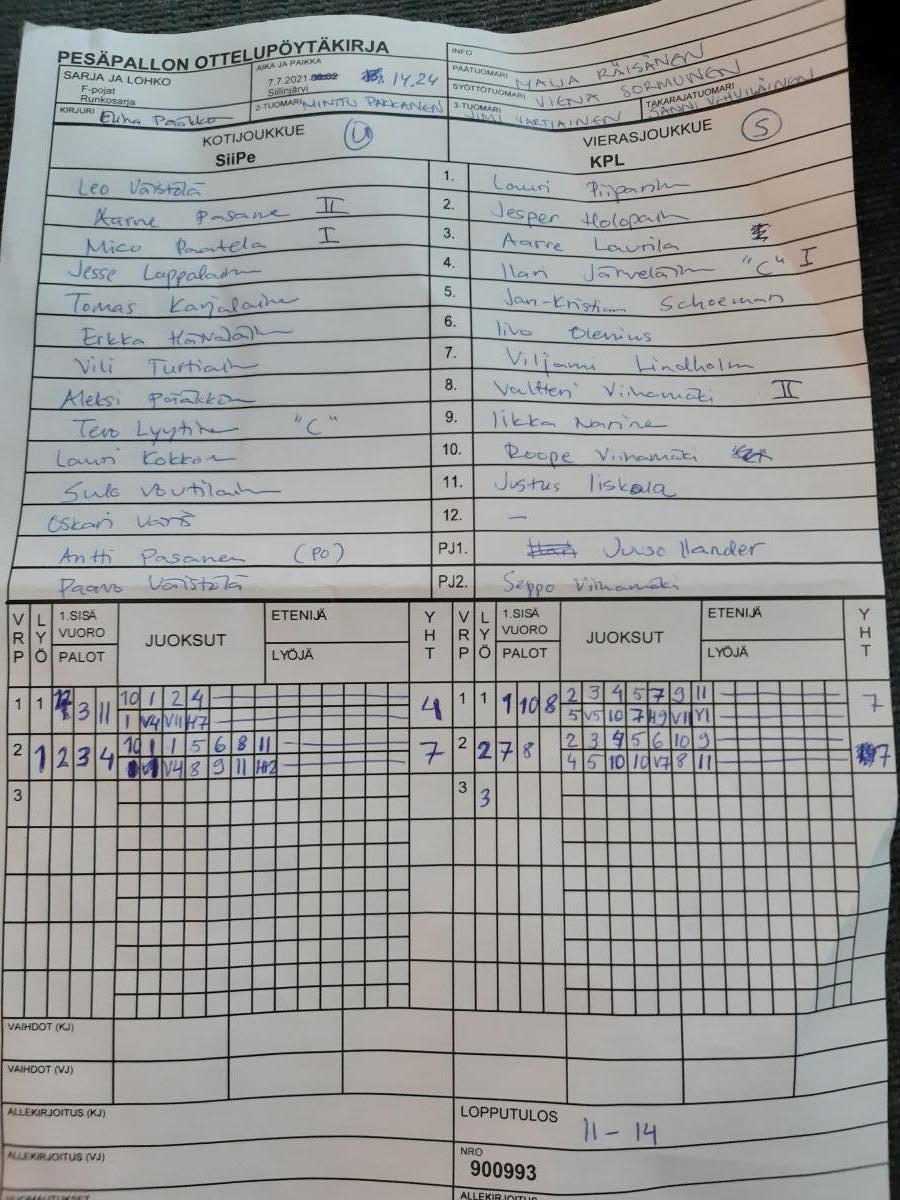 PESÄPALLON OTTELUPÖYTÄKIRJA
INFO
SARJA JA LOHKO
F-pojat
Runkosarja
AIKA JA PAIKKA
7.7.2021 14.24
Siilinjärvi
PÄÄTUOMARI MAIJA RÄISÄNEN
SYÖTTÖTUOMARI VIENA SORMUNEN
KIRJURI
2-TUOMARI MINTTU PAKKANEN
3-TUOMARI JIMI VARTIAINEN
TAKARAJATUOMARI SANNI VEHVILÄINEN
KOTIJOUKKUE U
SiiPe
VIERASJOUKKUE S
KPL
Leo Väistölä 1. Lauri
Aarne Pasane II 2. Jesper
Mico Paatela I 3. Aarre Laurila
Jesse 4. Ilari "C" I
Tomas 5. Jan-Kristian Schoeman
Erkka 6. Iivo Olenius
Vili 7. Viljami Lindholm
Aleksi 8. Valtteri Viihamäki II
"C" 9. Iikka
Lauri 10. Roope Viihamäki
Sulo 11. Justus Iiskola
Oskari 12. —
Antti Pasanen (PO) PJ1. Juuso Ilander
Paavo Väistölä PJ2. Seppo Viihamäki
VRP LYÖ 1.SISÄ VUORO PALOT JUOKSUT ETENIJÄ LYÖJÄ YHT VRP LYÖ 1.SISÄ VUORO PALOT JUOKSUT ETENIJÄ LYÖJÄ YHT
1 1 3 11 10 1 2 4 4 1 1 1 10 8 2 3 4 5 7 9 11 7
1 V4 VII H7 5 V5 10 7 H9 VII VI
2 1 2 3 4 10 1 1 5 6 8 11 7 2 2 7 8 2 3 4 5 6 10 9 7
V4 8 9 11 4 5 10 10 V7 8 11
3 3 3
VAIHDOT (KJ)
VAIHDOT (VJ)
ALLEKIRJOITUS (KJ)
LOPPUTULOS
11 - 14
ALLEKIRJOITUS (VJ)
NRO
900993
HUOMAUTUKSET
ALLEKIRJOITUS